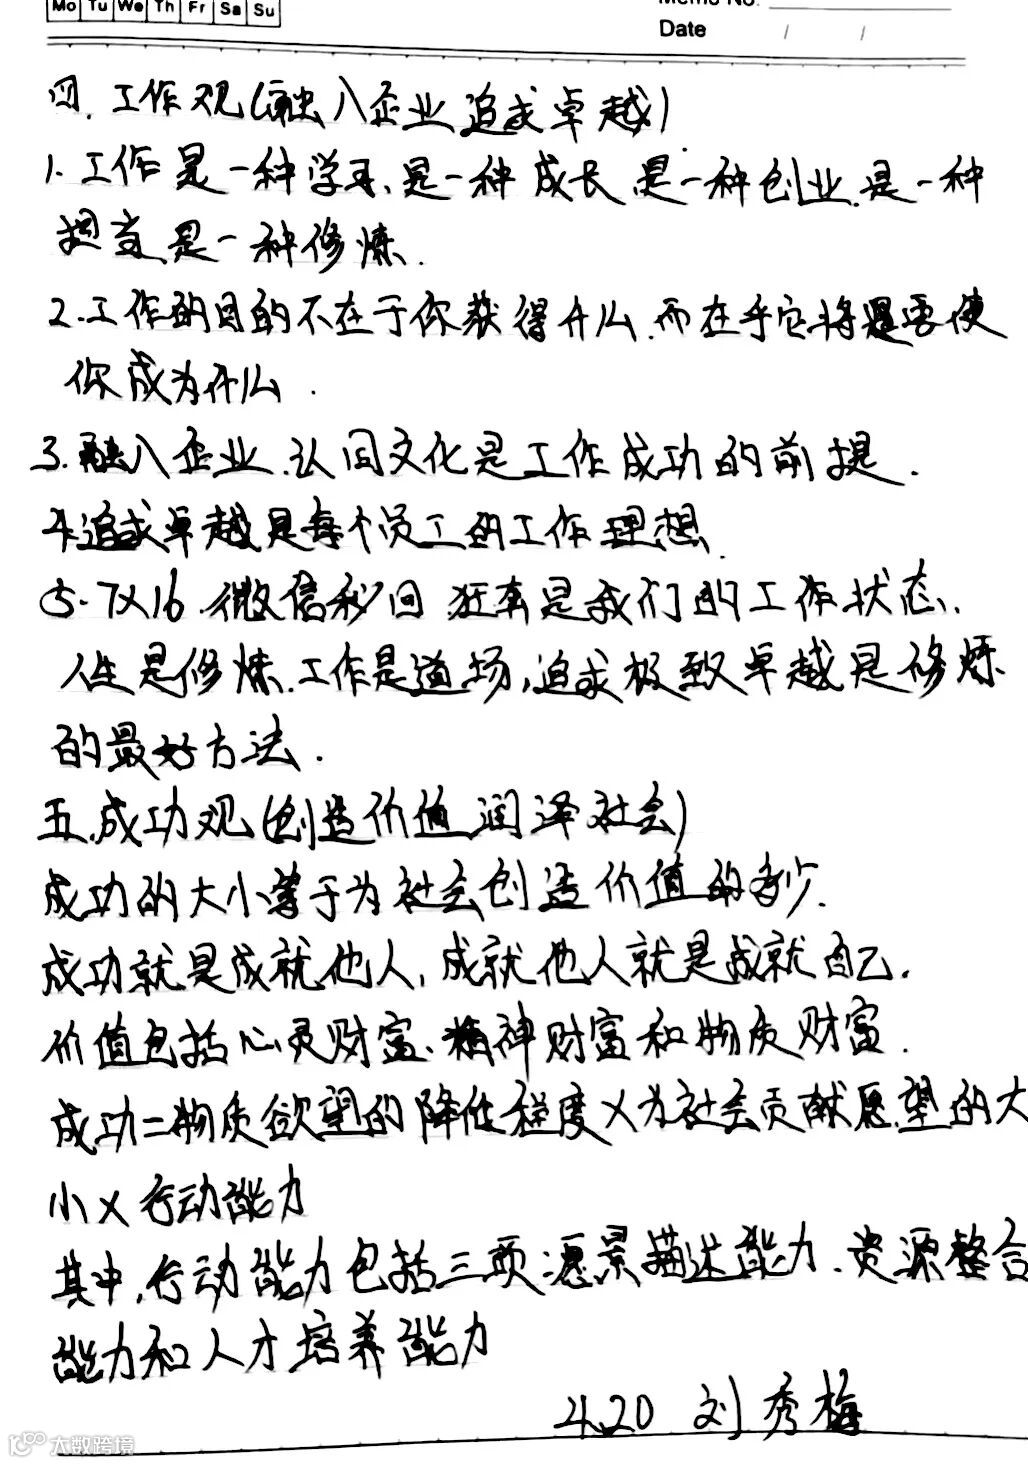 Mo Tu We Th Fr Sa Su
Memo No.
Date / /
四.工作观(融入企业 追求卓越)
1.工作是一种学习、是一种成长、是一种创业、是一种
担当、是一种修炼.
2.工作的目的不在于你获得什么.而在乎它将是要使
你成为什么.
3.融入企业、认同文化是工作成功的前提.
4.追求卓越是每个员工的工作理想.
⑤.7X16、微信秒回 狂奔是我们的工作状态.
人生是修炼.工作是道场,追求极致卓越是修炼
的最好方法.
五.成功观(创造价值 润泽社会)
成功的大小等于为社会创造价值的多少.
成功就是成就他人,成就他人就是成就自己.
价值包括心灵财富、精神财富和物质财富.
成功=物质欲望的降低程度X为社会贡献愿望的大
小X行动能力
其中,行动能力包括三项:愿景描述能力、资源整合
能力和人才培养能力
4.20 刘秀梅
大数跨境